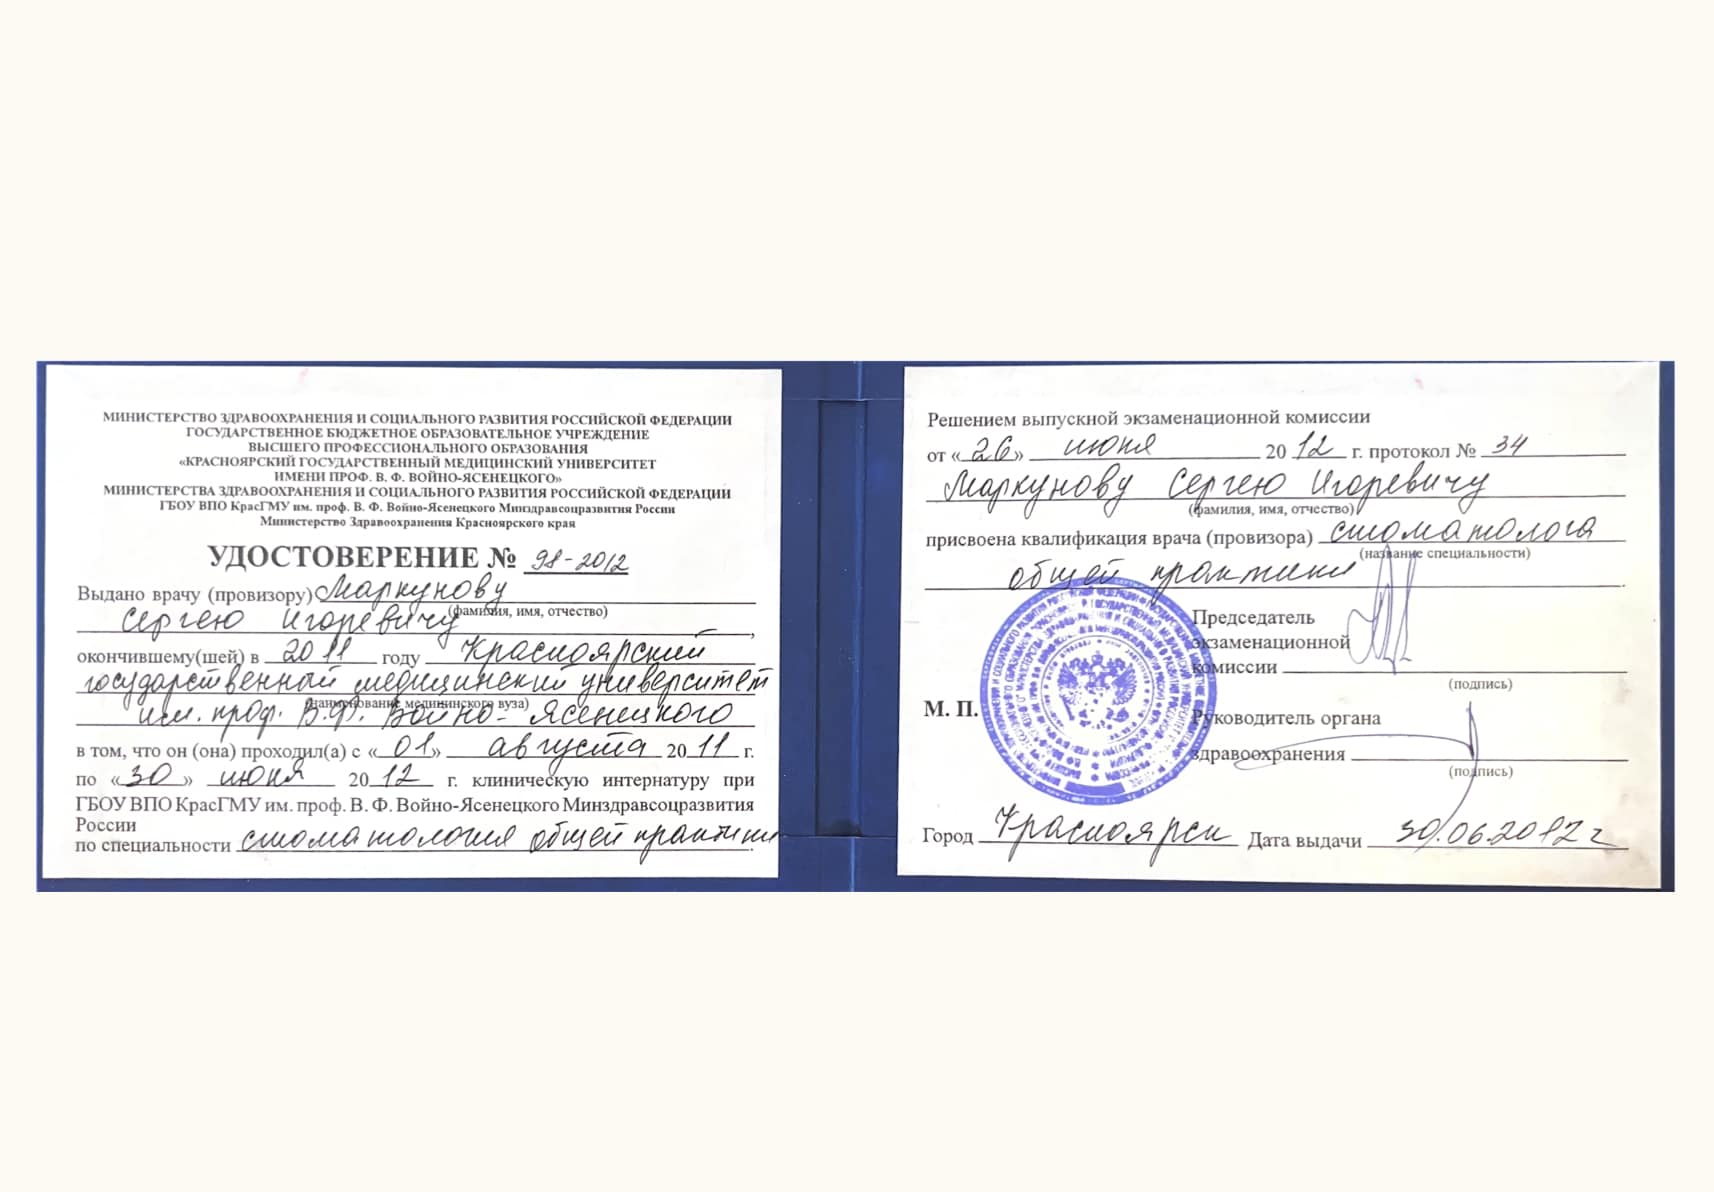 МИНИСТЕРСТВО ЗДРАВООХРАНЕНИЯ И СОЦИАЛЬНОГО РАЗВИТИЯ РОССИЙСКОЙ ФЕДЕРАЦИИ
ГОСУДАРСТВЕННОЕ БЮДЖЕТНОЕ ОБРАЗОВАТЕЛЬНОЕ УЧРЕЖДЕНИЕ
ВЫСШЕГО ПРОФЕССИОНАЛЬНОГО ОБРАЗОВАНИЯ
«КРАСНОЯРСКИЙ ГОСУДАРСТВЕННЫЙ МЕДИЦИНСКИЙ УНИВЕРСИТЕТ
ИМЕНИ ПРОФ. В. Ф. ВОЙНО-ЯСЕНЕЦКОГО»
МИНИСТЕРСТВА ЗДРАВООХРАНЕНИЯ И СОЦИАЛЬНОГО РАЗВИТИЯ РОССИЙСКОЙ ФЕДЕРАЦИИ
ГБОУ ВПО КрасГМУ им. проф. В. Ф. Войно-Ясенецкого Минздравсоцразвития России
Министерство Здравоохранения Красноярского края
УДОСТОВЕРЕНИЕ № 98-2012
Выдано врачу (провизору) Маркунову
(фамилия, имя, отчество)
Сергею Игоревичу,
окончившему(шей) в 2011 году Красноярский
государственный медицинский университет
(наименование медицинского вуза)
им. проф. В.Ф. Войно-Ясенецкого
в том, что он (она) проходил(а) с «01» августа 2011 г.
по «30» июня 2012 г. клиническую интернатуру при
ГБОУ ВПО КрасГМУ им. проф. В. Ф. Войно-Ясенецкого Минздравсоцразвития
России
по специальности стоматология общей практики
Решением выпускной экзаменационной комиссии
от «26» июня 2012 г. протокол № 34
Маркунову Сергею Игоревичу
(фамилия, имя, отчество)
присвоена квалификация врача (провизора) стоматолога
(название специальности)
общей практики
Председатель
экзаменационной
комиссии
(подпись)
М. П.
Руководитель органа
здравоохранения
(подпись)
Город Красноярск Дата выдачи 30.06.2012 г